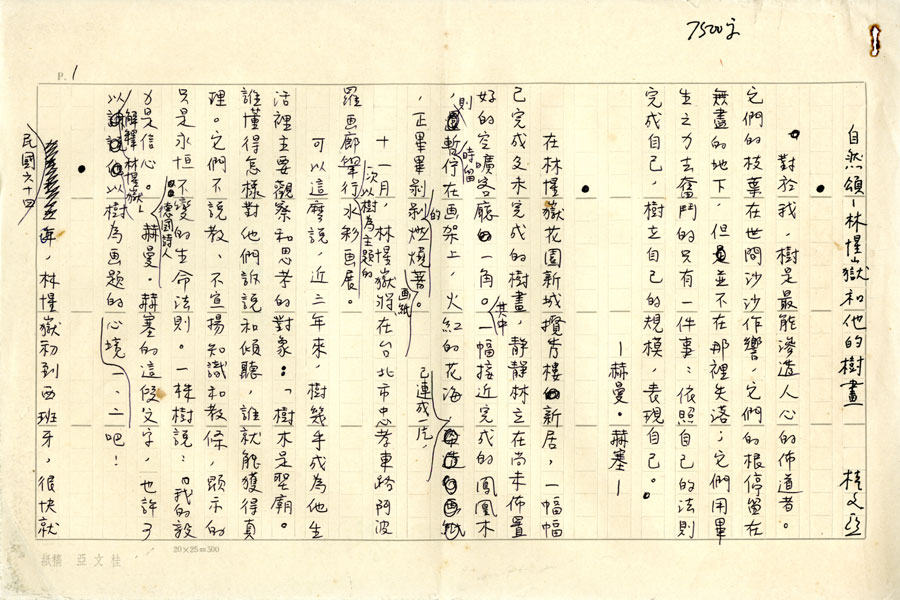 7500字
P. 1
自然頌－林惺嶽和他的樹畫　桂文亞
對於我，樹是最能滲透人心的佈道者。
它們的枝葉在世間沙沙作響，它們的根停留在
無盡的地下，但並不在那裡失落；它們用畢
生之力去奮鬥的只有一件事：依照自己的法則
完成自己，樹立自己的規模，表現自己。
－赫曼．赫塞－
在林惺嶽花園新城攬秀樓新居，一幅幅
已完成及未完成的樹畫，靜靜林立在尚未佈置
好的空曠客廳一角。其中一幅接近完成的鳳凰木
，則暫時停留在画架上，火紅的花海已連成一片，
，正畢畢剝剝的燃燒著画紙。
十一月，林惺嶽將在台北市忠孝東路阿波
羅画廊舉行次以樹為主題的水彩画展。
可以這麼說，近三年來，樹幾乎成為他生
活裡主要觀察和思考的對象：「樹木是聖廟。
誰懂得怎樣對他們訴說和傾聽，誰就能獲得真
理。它們不說教、不宣揚知識和教條，顯示的
只是永恒不變的生命法則。一株樹說：我的毅
力是信心。」德國詩人赫曼．赫塞的這段文字，也許可
以解釋林惺嶽以樹為画題的心境一、二吧！
民國六十四年，林惺嶽初到西班牙，很快就
20×25=500
桂文亞稿紙